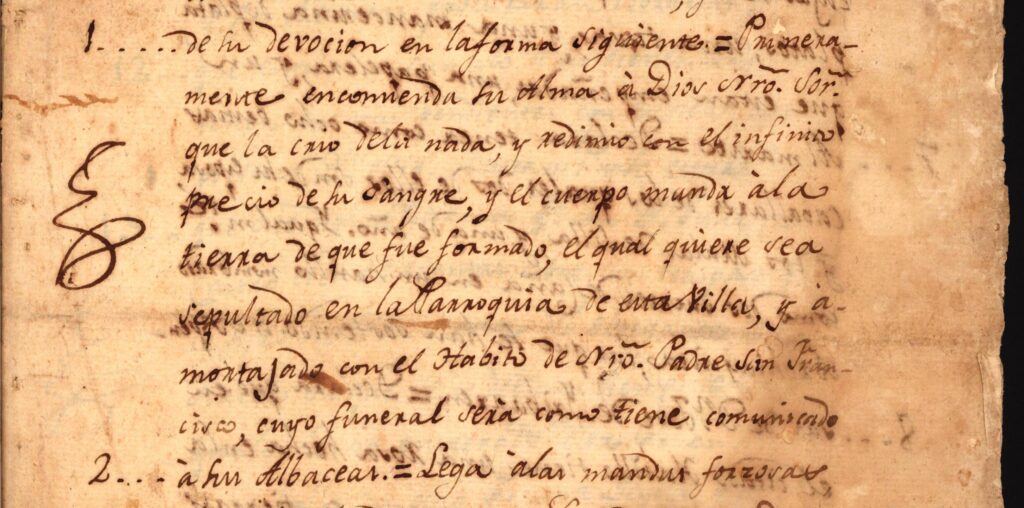 1.....de su devocion en la forma siguiente.=Primera-
mente encomienda su Alma à Dios Nrõ. Sor̃.
que la crio dela nada, y redimio con el infinito
precio de su Sangre, y el cuerpo manda à la
tierra de que fue formado, el qual quiere sea
sepultado en la Parroquia de esta Villa, y a-
mortajado con el Habito de Nrõ. Padre San Fran-
cisco, cuyo funeral serà como tiene comunicado
2....à sus Albaceas.=Lega àlas mandas forzosas